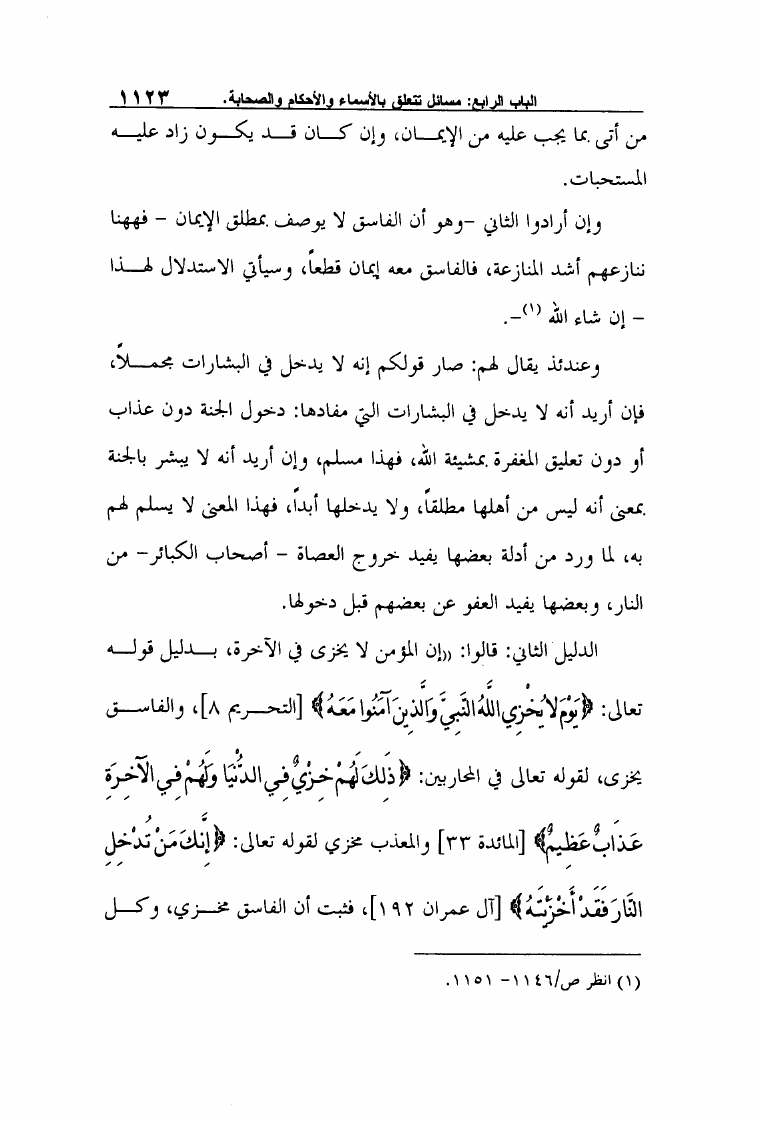 الباب الرابع: مسائل تتعلق بالأسماء والأحكام والصحابة. ١١٢٣
من أتى بما يجب عليه من الإيمـــان، وإن كـــان قـــد يكـــون زاد عليـــه
المستحبات.
وإن أرادوا الثاني –وهو أن الفاسق لا يوصف بمطلق الإيمان – فههنا
ننازعهم أشد المنازعة، فالفاسق معه إيمان قطعاً، وسيأتي الاستدلال لهـــذا
– إن شاء الله (١)–.
وعندئذ يقال لهم: صار قولكم إنه لا يدخل في البشارات مجمـــلاً،
فإن أريد أنه لا يدخل في البشارات التي مفادها: دخول الجنة دون عذاب
أو دون تعليق المغفرة بمشيئة الله، فهذا مسلم، وإن أريد أنه لا يبشر بالجنة
بمعنى أنه ليس من أهلها مطلقاً، ولا يدخلها أبداً، فهذا المعنى لا يسلم لهم
به، لما ورد من أدلة بعضها يفيد خروج العصاة – أصحاب الكبائر– من
النار، وبعضها يفيد العفو عن بعضهم قبل دخولها.
الدليل الثاني: قالوا: ((إن المؤمن لا يخزى في الآخرة، بـــدليل قولـــه
تعالى: ﴿يَوْمَ لاَ يُخْزِي اللَّهُ النَّبِيَّ وَالَّذِينَ آمَنُوا مَعَهُ﴾ [التحـــريم ٨]، والفاســـق
يخزى، لقوله تعالى في المحاربين: ﴿ذَلِكَ لَهُمْ خِزْيٌ فِي الدُّنْيَا وَلَهُمْ فِي الآخِرَةِ
عَذَابٌ عَظِيمٌ﴾ [المائدة ٣٣] والمعذب مخزي لقوله تعالى: ﴿إِنَّكَ مَنْ تُدْخِلِ
النَّارَ فَقَدْ أَخْزَيْتَهُ﴾ [آل عمران ١٩٢]، فثبت أن الفاسق مخـــزي، وكـــل
(١) انظر ص/١١٤٦– ١١٥١.